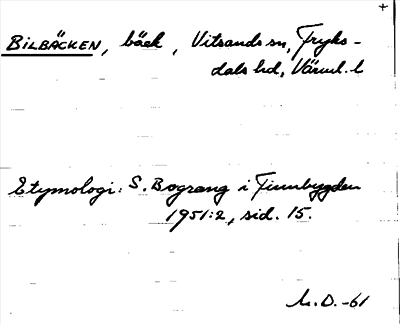 +
BILBÄCKEN, bäck, Vitsands sn, Fryks-
dals hd, Värml. l
Etymologi: S. Bograng i Finnbygden
1951:2, sid. 15.
M.D. -61